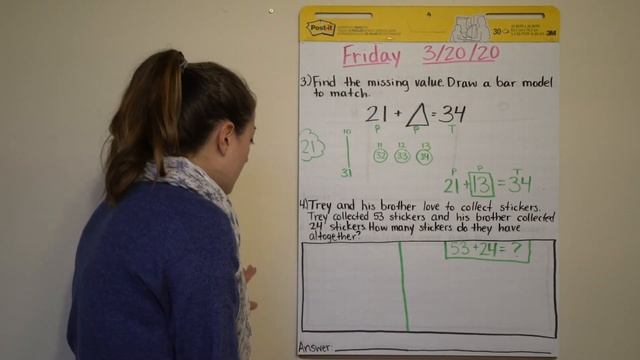 Post-it
30
3M
Friday 3/20/20
3.) Find the missing value. Draw a bar model
to match.
21 + △ = 34
P P T
10 11 12 13
21 32 33 34
31
P P T
21 + 13 = 34
4.) Trey and his brother love to collect stickers.
Trey collected 53 stickers and his brother collected
24 stickers. How many stickers do they have
altogether?
53 + 24 = ?
Answer: